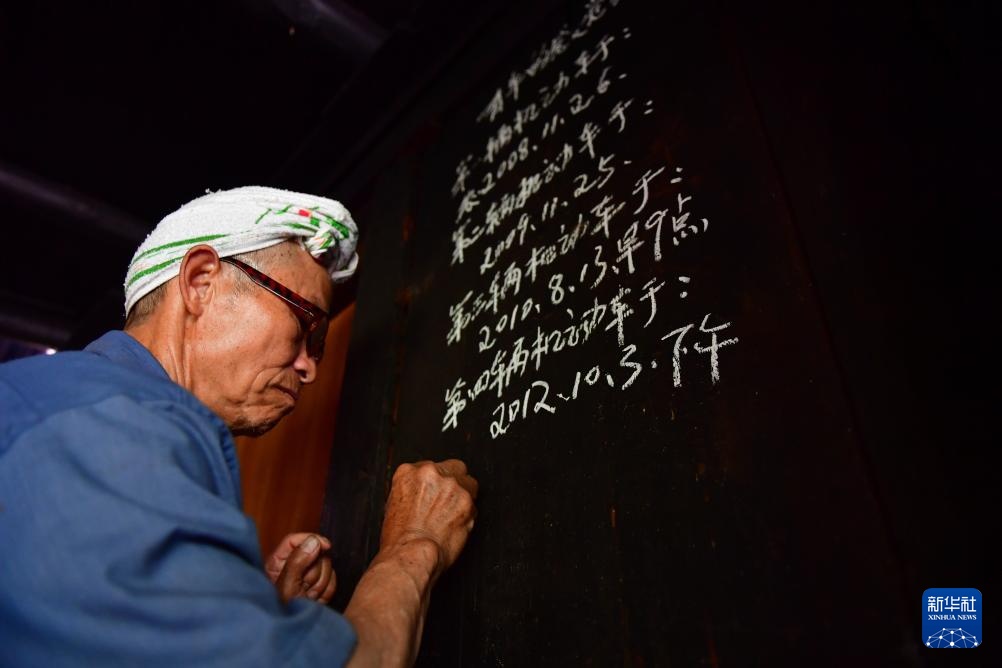 第一辆机动车于：
2008.11.26.
第二辆机动车于：
2009.11.25.
第三辆机动车于：
2010.8.13.早9点
第四辆机动车于：
2012.10.3.下午
新华社
XINHUA NEWS